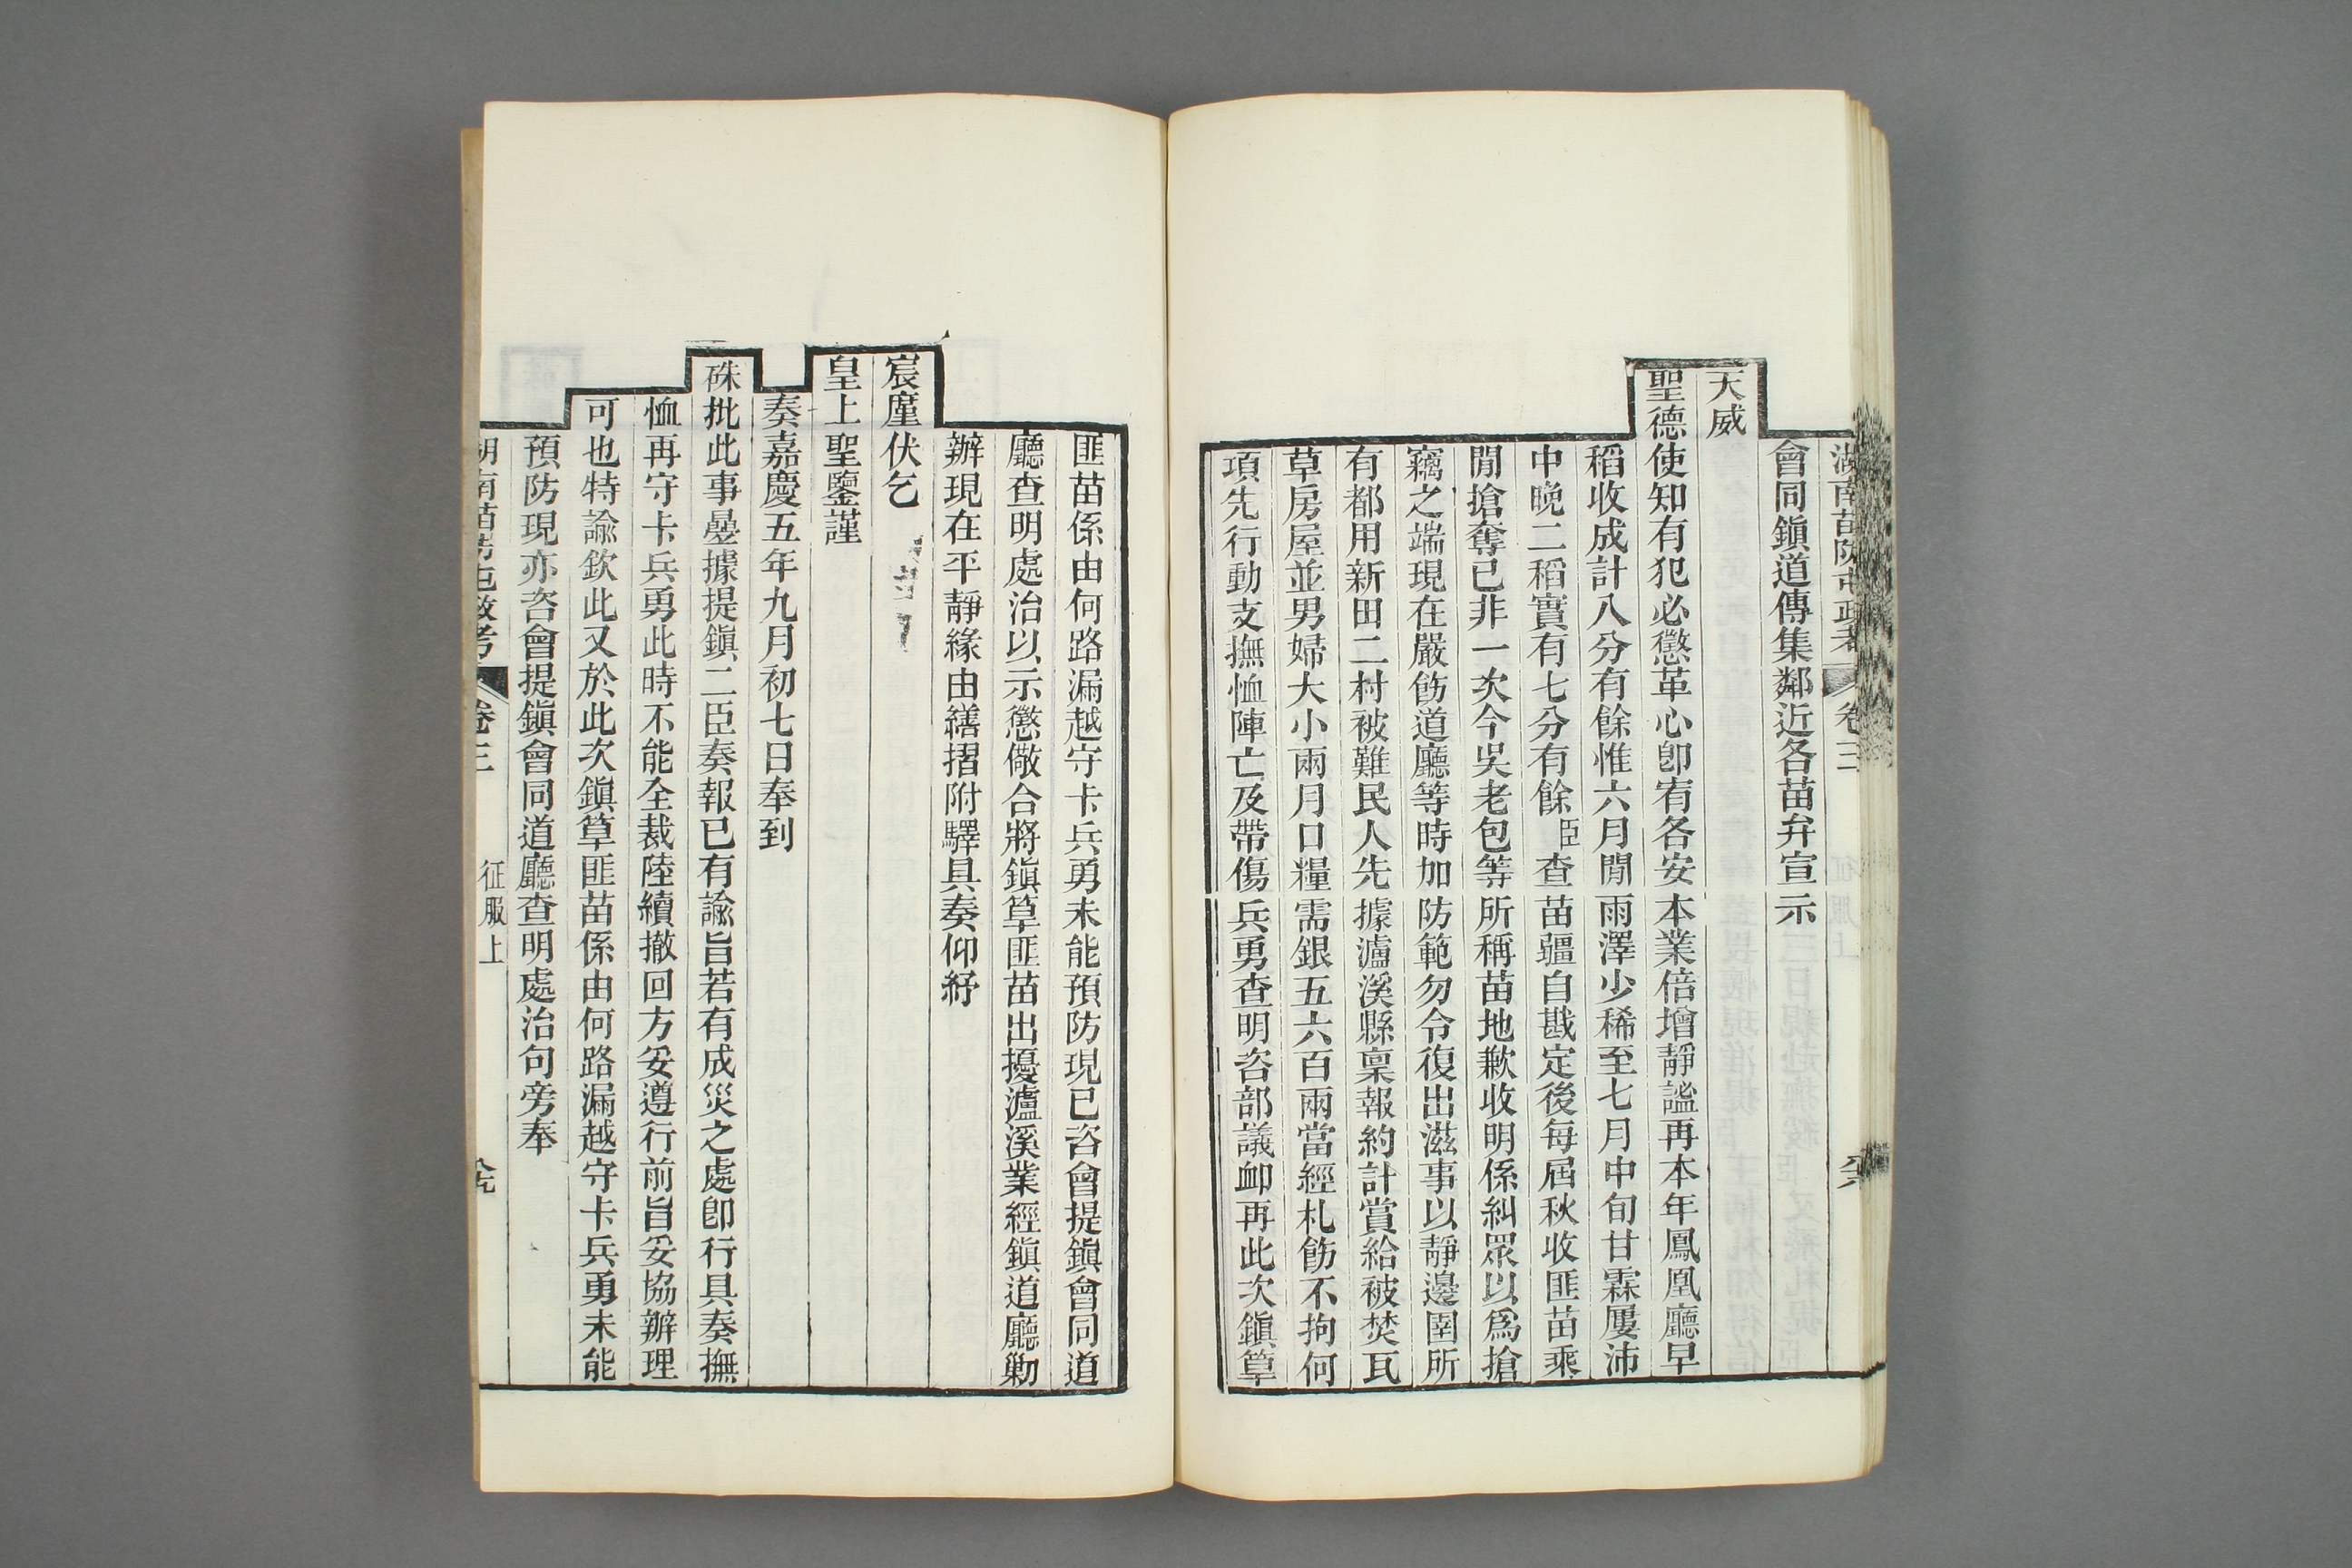 湖南苗防屯政考 卷三
會同鎭道傳集鄰近各苗弁宣示
天威
聖德使知有犯必懲革心卽宥各安本業倍增靜謐再本年鳳凰廳早
稻收成計八分有餘惟六月閒雨澤少稀至七月中旬甘霖屢沛
中晚二稻實有七分有餘臣查苗疆自戡定後每屆秋收匪苗乘
閒搶奪已非一次今吳老包等所稱苗地歉收明係糾眾以爲搶
竊之端現在嚴飭道廳等時加防範勿令復出滋事以靜邊圉所
有都用新田二村被難民人先據瀘溪縣稟報約計賞給被焚瓦
草房屋並男婦大小兩月口糧需銀五六百兩當經札飭不拘何
項先行動支撫恤陣亡及帶傷兵勇查明咨部議卹再此次鎭筸
匪苗係由何路漏越守卡兵勇未能預防現已咨會提鎭會同道
廳查明處治以示懲儆合將鎭筸匪苗出擾瀘溪業經鎭道廳勦
辦現在平靜緣由繕摺附驛具奏仰紓
宸廑伏乞
皇上聖鑒謹
奏嘉慶五年九月初七日奉到
硃批此事曼據提鎭二臣奏報已有諭旨若有成災之處卽行具奏撫
恤再守卡兵勇此時不能全裁陸續撤回方妥遵行前旨妥協辦理
可也特諭欽此又於此次鎭筸匪苗係由何路漏越守卡兵勇未能
預防現亦咨會提鎭會同道廳查明處治句旁奉
湖南苗防屯政考 卷三 征服上